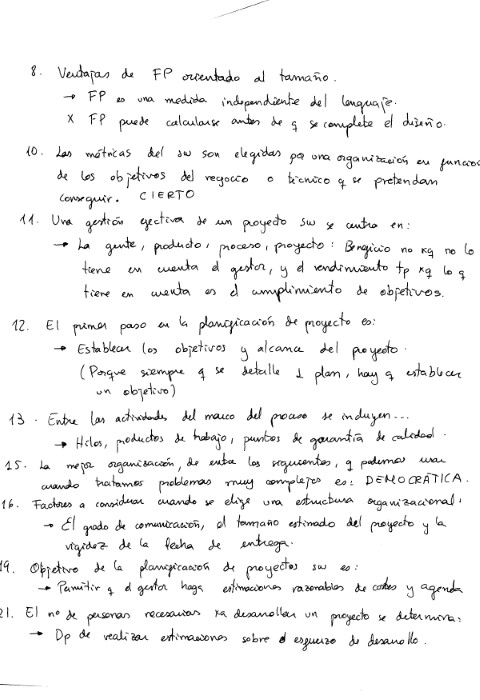 8. Ventajas de FP orientado al tamaño.
→ FP es una medida independiente del lenguaje.
X FP puede calcularse antes de q se complete el diseño.
10. Las métricas del sw son elegidas por una organización en función
de los objetivos del negocio o técnico q se pretendan
conseguir. CIERTO
11. Una gestión efectiva de un proyecto sw se centra en:
→ La gente, producto, proceso, proyecto: Beneficio no xq no lo
tiene en cuenta el gestor, y el rendimiento tp xq lo q
tiene en cuenta es el cumplimiento de objetivos.
12. El primer paso en la planificación de proyecto es:
→ Establecer los objetivos y alcance del proyecto.
(Porque siempre q se detalle 1 plan, hay q establecer
un objetivo)
13. Entre las actividades del marco del proceso se incluyen...
→ Hitos, productos de trabajo, puntos de garantía de calidad.
15. La mejor organización, de entre las siguientes, q podemos usar
cuando tratamos problemas muy complejos es: DEMOCRÁTICA.
16. Factores a considerar cuando se elige una estructura organizacional:
→ El grado de comunicación, el tamaño estimado del proyecto y la
rigidez de la fecha de entrega.
19. Objetivo de la planificación de proyectos sw es:
→ Permitir q el gestor haga estimaciones razonables de costes y agenda
21. El no de personas necesarias xa desarrollar un proyecto se determina:
→ Dp de realizar estimaciones sobre el esfuerzo de desarrollo.